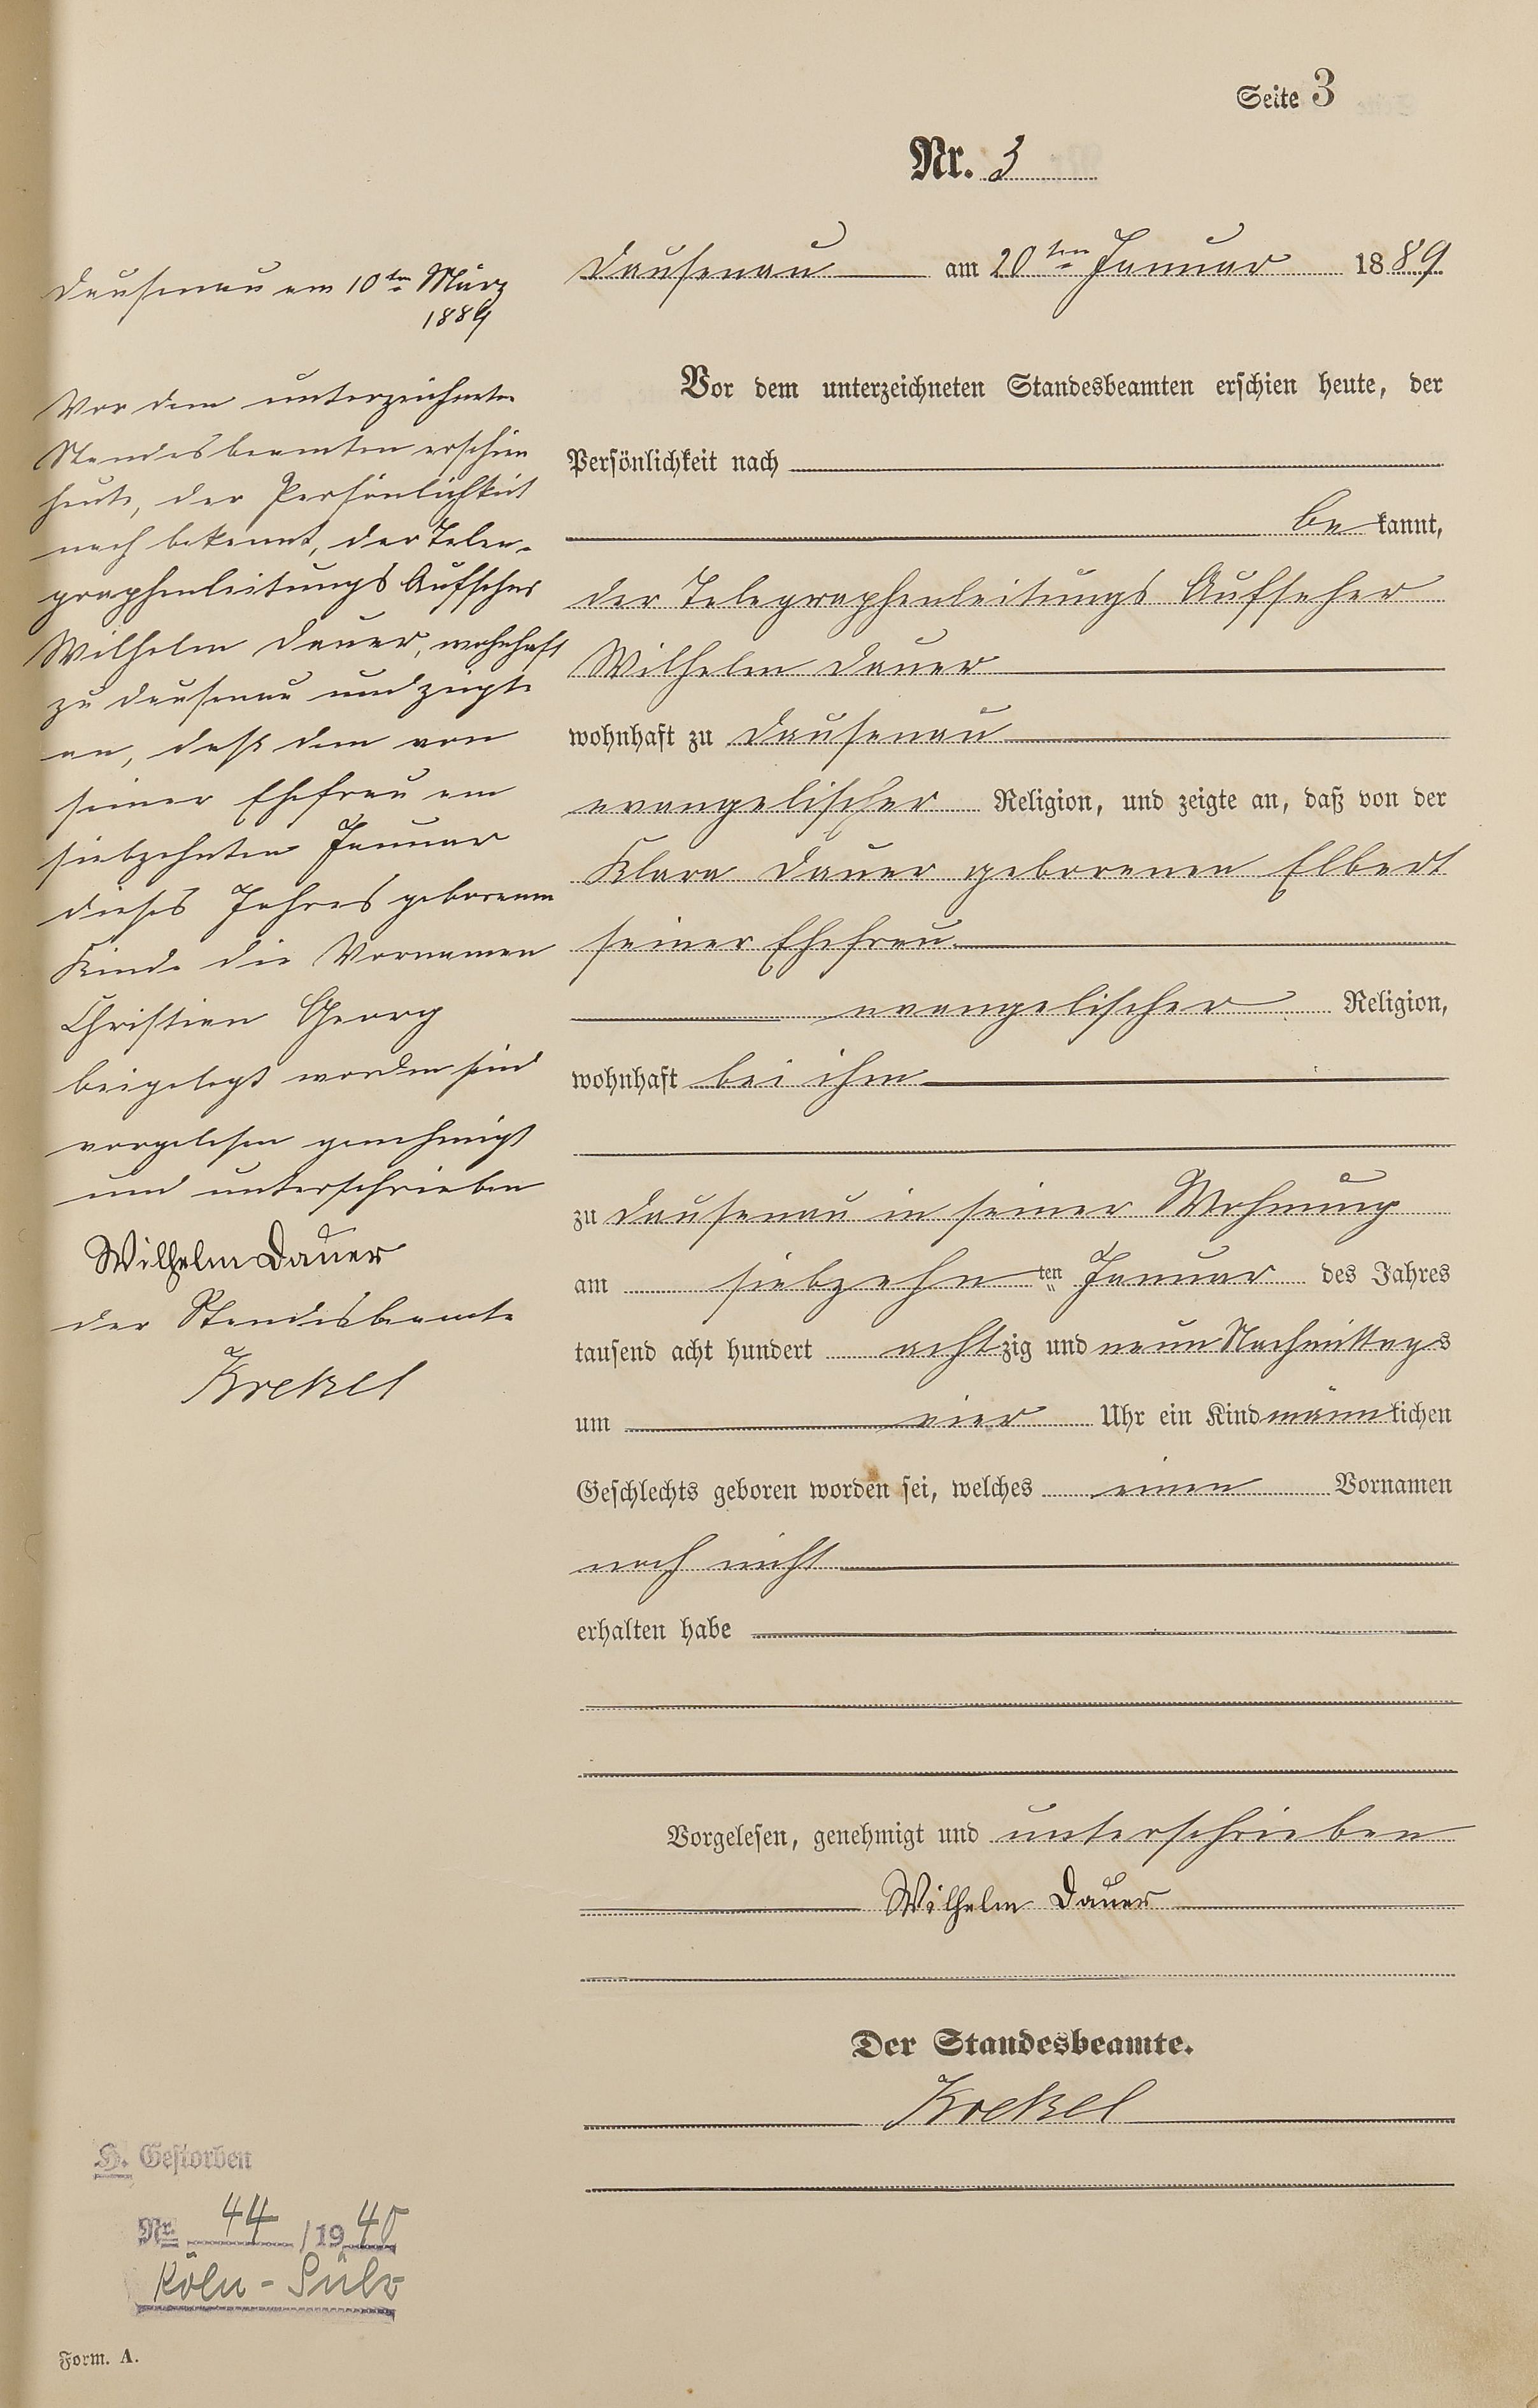 Seite 3
Nr. 3
Dausenau am 20ten Januar 1889
Vor dem unterzeichneten Standesbeamten erschien heute, der
Persönlichkeit nach
be kannt,
der Telegraphenleitungs Aufseher
Wilhelm Dauer
wohnhaft zu Dausenau
evangelischer Religion, und zeigte an, daß von der
Klara Dauer geborenen Elbert
seiner Ehefrau
evangelischer Religion,
wohnhaft bei ihm
zu Dausenau in seiner Wohnung
am siebzehn ten Januar des Jahres
tausend acht hundert acht zig und neun Nachmittags
um vier Uhr ein Kind männlichen
Geschlechts geboren worden sei, welches einen Vornamen
noch nicht
erhalten habe
Vorgelesen, genehmigt und unterschrieben
Wilhelm Dauer
Der Standesbeamte.
Krekel
Dausenau am 10ten März
1889
Vor dem unterzeichneten
Standesbeamten erschien
heute, der Persönlichkeit
nach bekannt, der Tele-
graphenleitungs Aufseher
Wilhelm Dauer, wohnhaft
zu Dausenau und zeigte
an, daß dem von
seiner Ehefrau am
siebzehnten Januar
dieses Jahres geborenen
Kinde die Vornamen
Christian Georg
beigelegt worden sind
vorgelesen genehmigt
und unterschrieben
Wilhelm Dauer
der Standesbeamte
Krekel
H. Gestorben
Nr. 44 /1940
Köln-Sülz
Form. A.